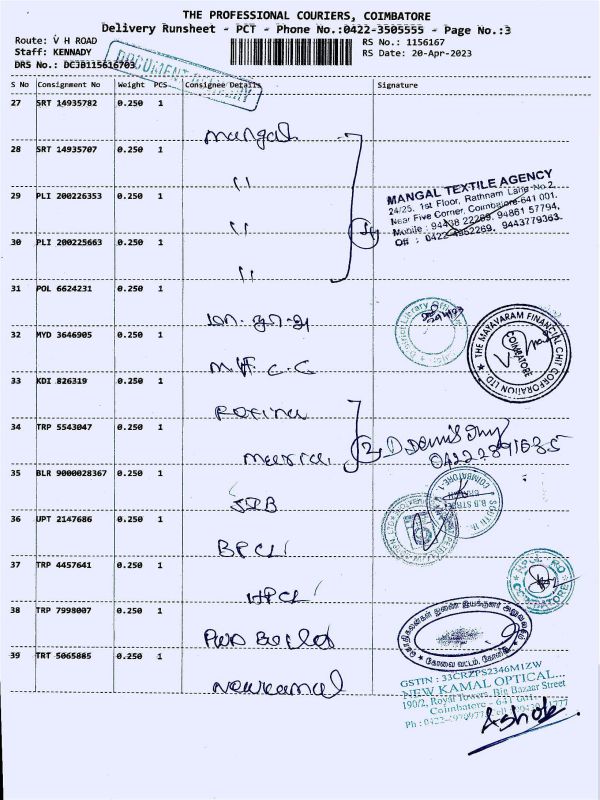 THE PROFESSIONAL COURIERS, COIMBATORE
Delivery Runsheet - PCT - Phone No.:0422-3505555 - Page No.:3
Route: V H ROAD
RS No.: 1156167
Staff: KENNADY
RS Date: 20-Apr-2023
DRS No.: DCJB115616703
DOCUMENT
S No Consignment No Weight PCS Consignee Details Signature
27 SRT 14935782 0.250 1
Mangal
28 SRT 14935707 0.250 1
"
29 PLI 200226353 0.250 1
"
30 PLI 200225663 0.250 1
"
MANGAL TEXTILE AGENCY
24/25, 1st Floor, Rathnam Lane No.2,
Near Five Corner, Coimbatore-641 001.
Mobile : 94438 22289, 94861 57794,
Off : 0422 4952269, 9443779363.
31 POL 6624231 0.250 1
மா. நூ. அ
District Library
32 MYD 3646905 0.250 1
M.F. C.C
THE MAYAVARAM FINANCIAL CHIT CORPORATION LTD.
COIMBATORE
33 KDI 826319 0.250 1
34 TRP 5543047 0.250 1
2
0422
35 BLR 9000028367 0.250 1
COIMBATORE-1
36 UPT 2147686 0.250 1
BPCL
37 TRP 4457641 0.250 1
HPCL
COIMBATORE
38 TRP 7998007 0.250 1
துணை இயக்குனர் அலுவலகம்
கோவை வட்டம்,
39 TRT 5065885 0.250 1
Newkamal
GSTIN : 33CRZPS2346M1ZW
NEW KAMAL OPTICAL...
190/2, Royal Towers, Big Bazaar Street
Coimbatore - 641 001
Ashok